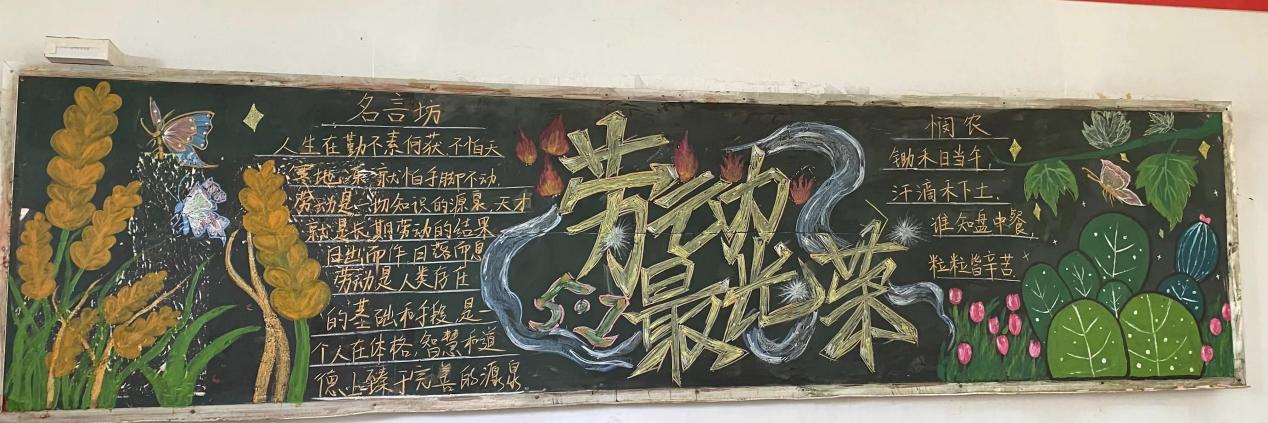 名言坊
人生在勤不素何获 不怕天
寒地冻 就怕手脚不动
劳动是一切知识的源泉 天才
就是长期劳动的结果
日出而作 日落而息
劳动是人类存在
的基础和手段 是一
个人在体格,智慧和道
德上臻于完善的源泉
劳动
最光荣
5·1
悯农
锄禾日当午,
汗滴禾下土,
谁知盘中餐
粒粒皆辛苦